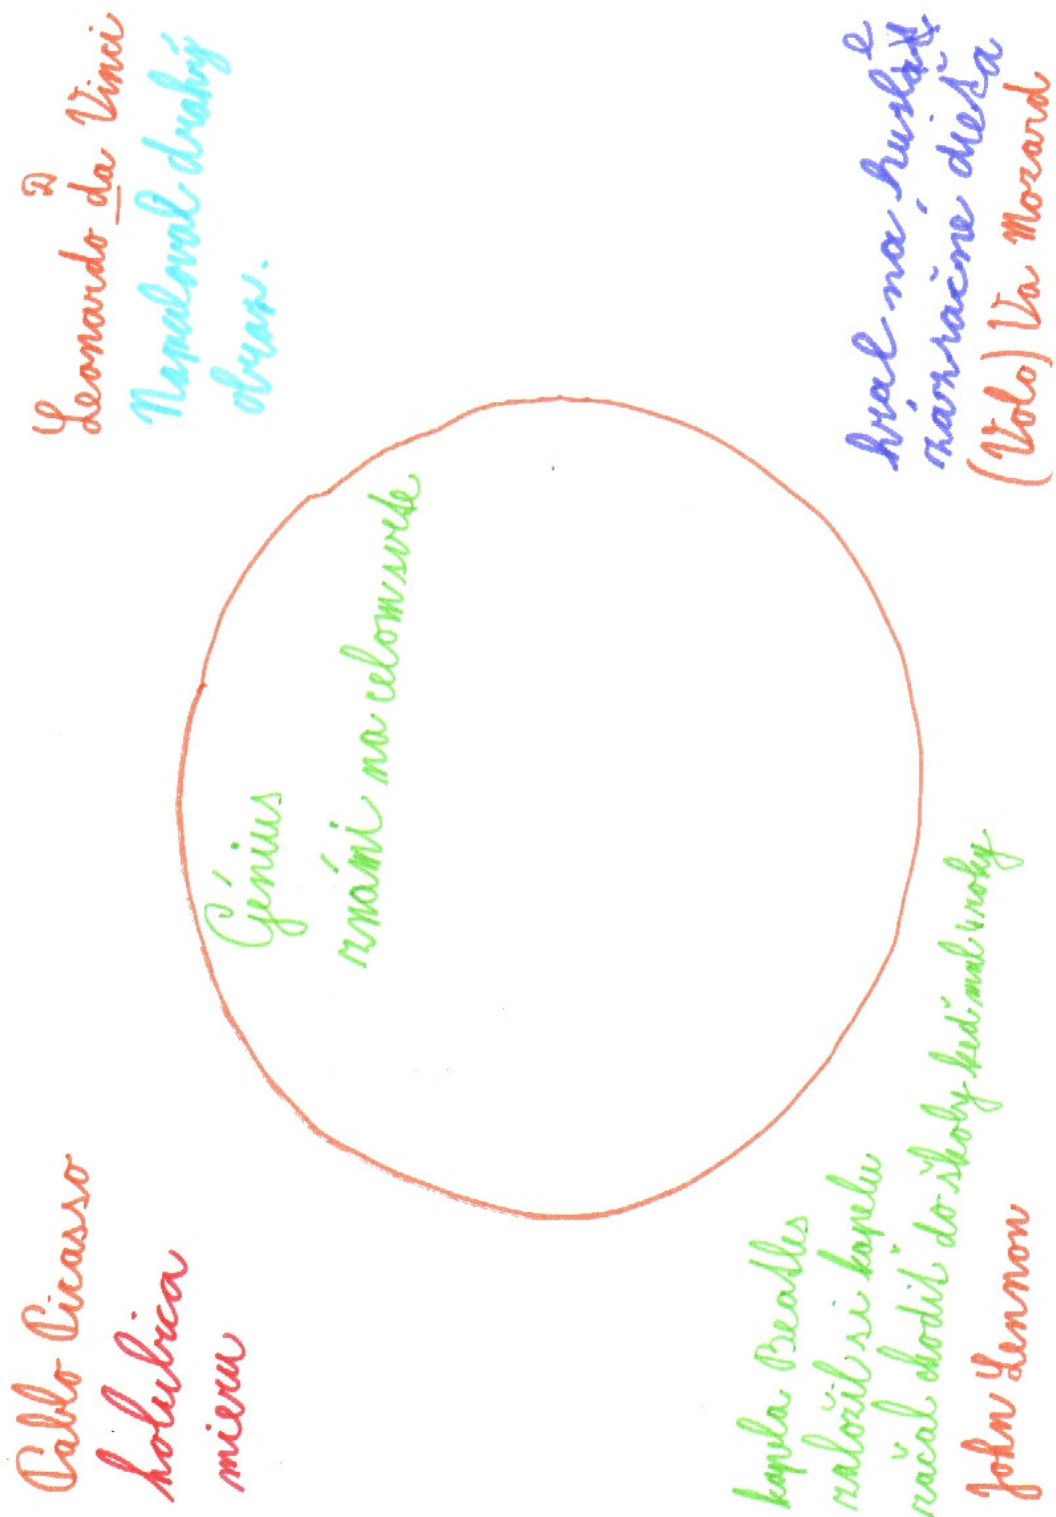 Pablo Picasso
holubica
mieru
Leonardo da Vinci
D
Namaloval drahý
obraz.
Génius
známi na celom svete
kapela Beatles
založil si kapelu
začal chodiť do školy keď mal 4 roky
John Lennon
hral na husle
zázračné dieťa
(Volo) Va Mozard